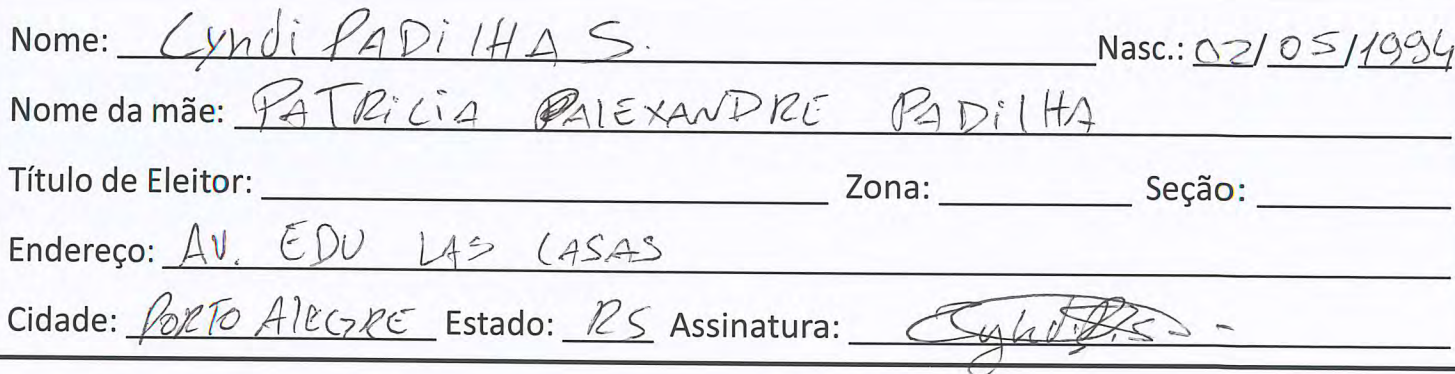 Nome: Cyndi PADilHA S. Nasc.: 02/05/1994
Nome da mãe: PATRiCiA ALEXANDRE PADilHA
Título de Eleitor: Zona: Seção:
Endereço: AV. EDU LAS CASAS
Cidade: PORTO AlEGRE Estado: RS Assinatura: